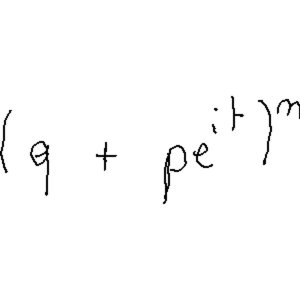 (q + pe^{it})^n